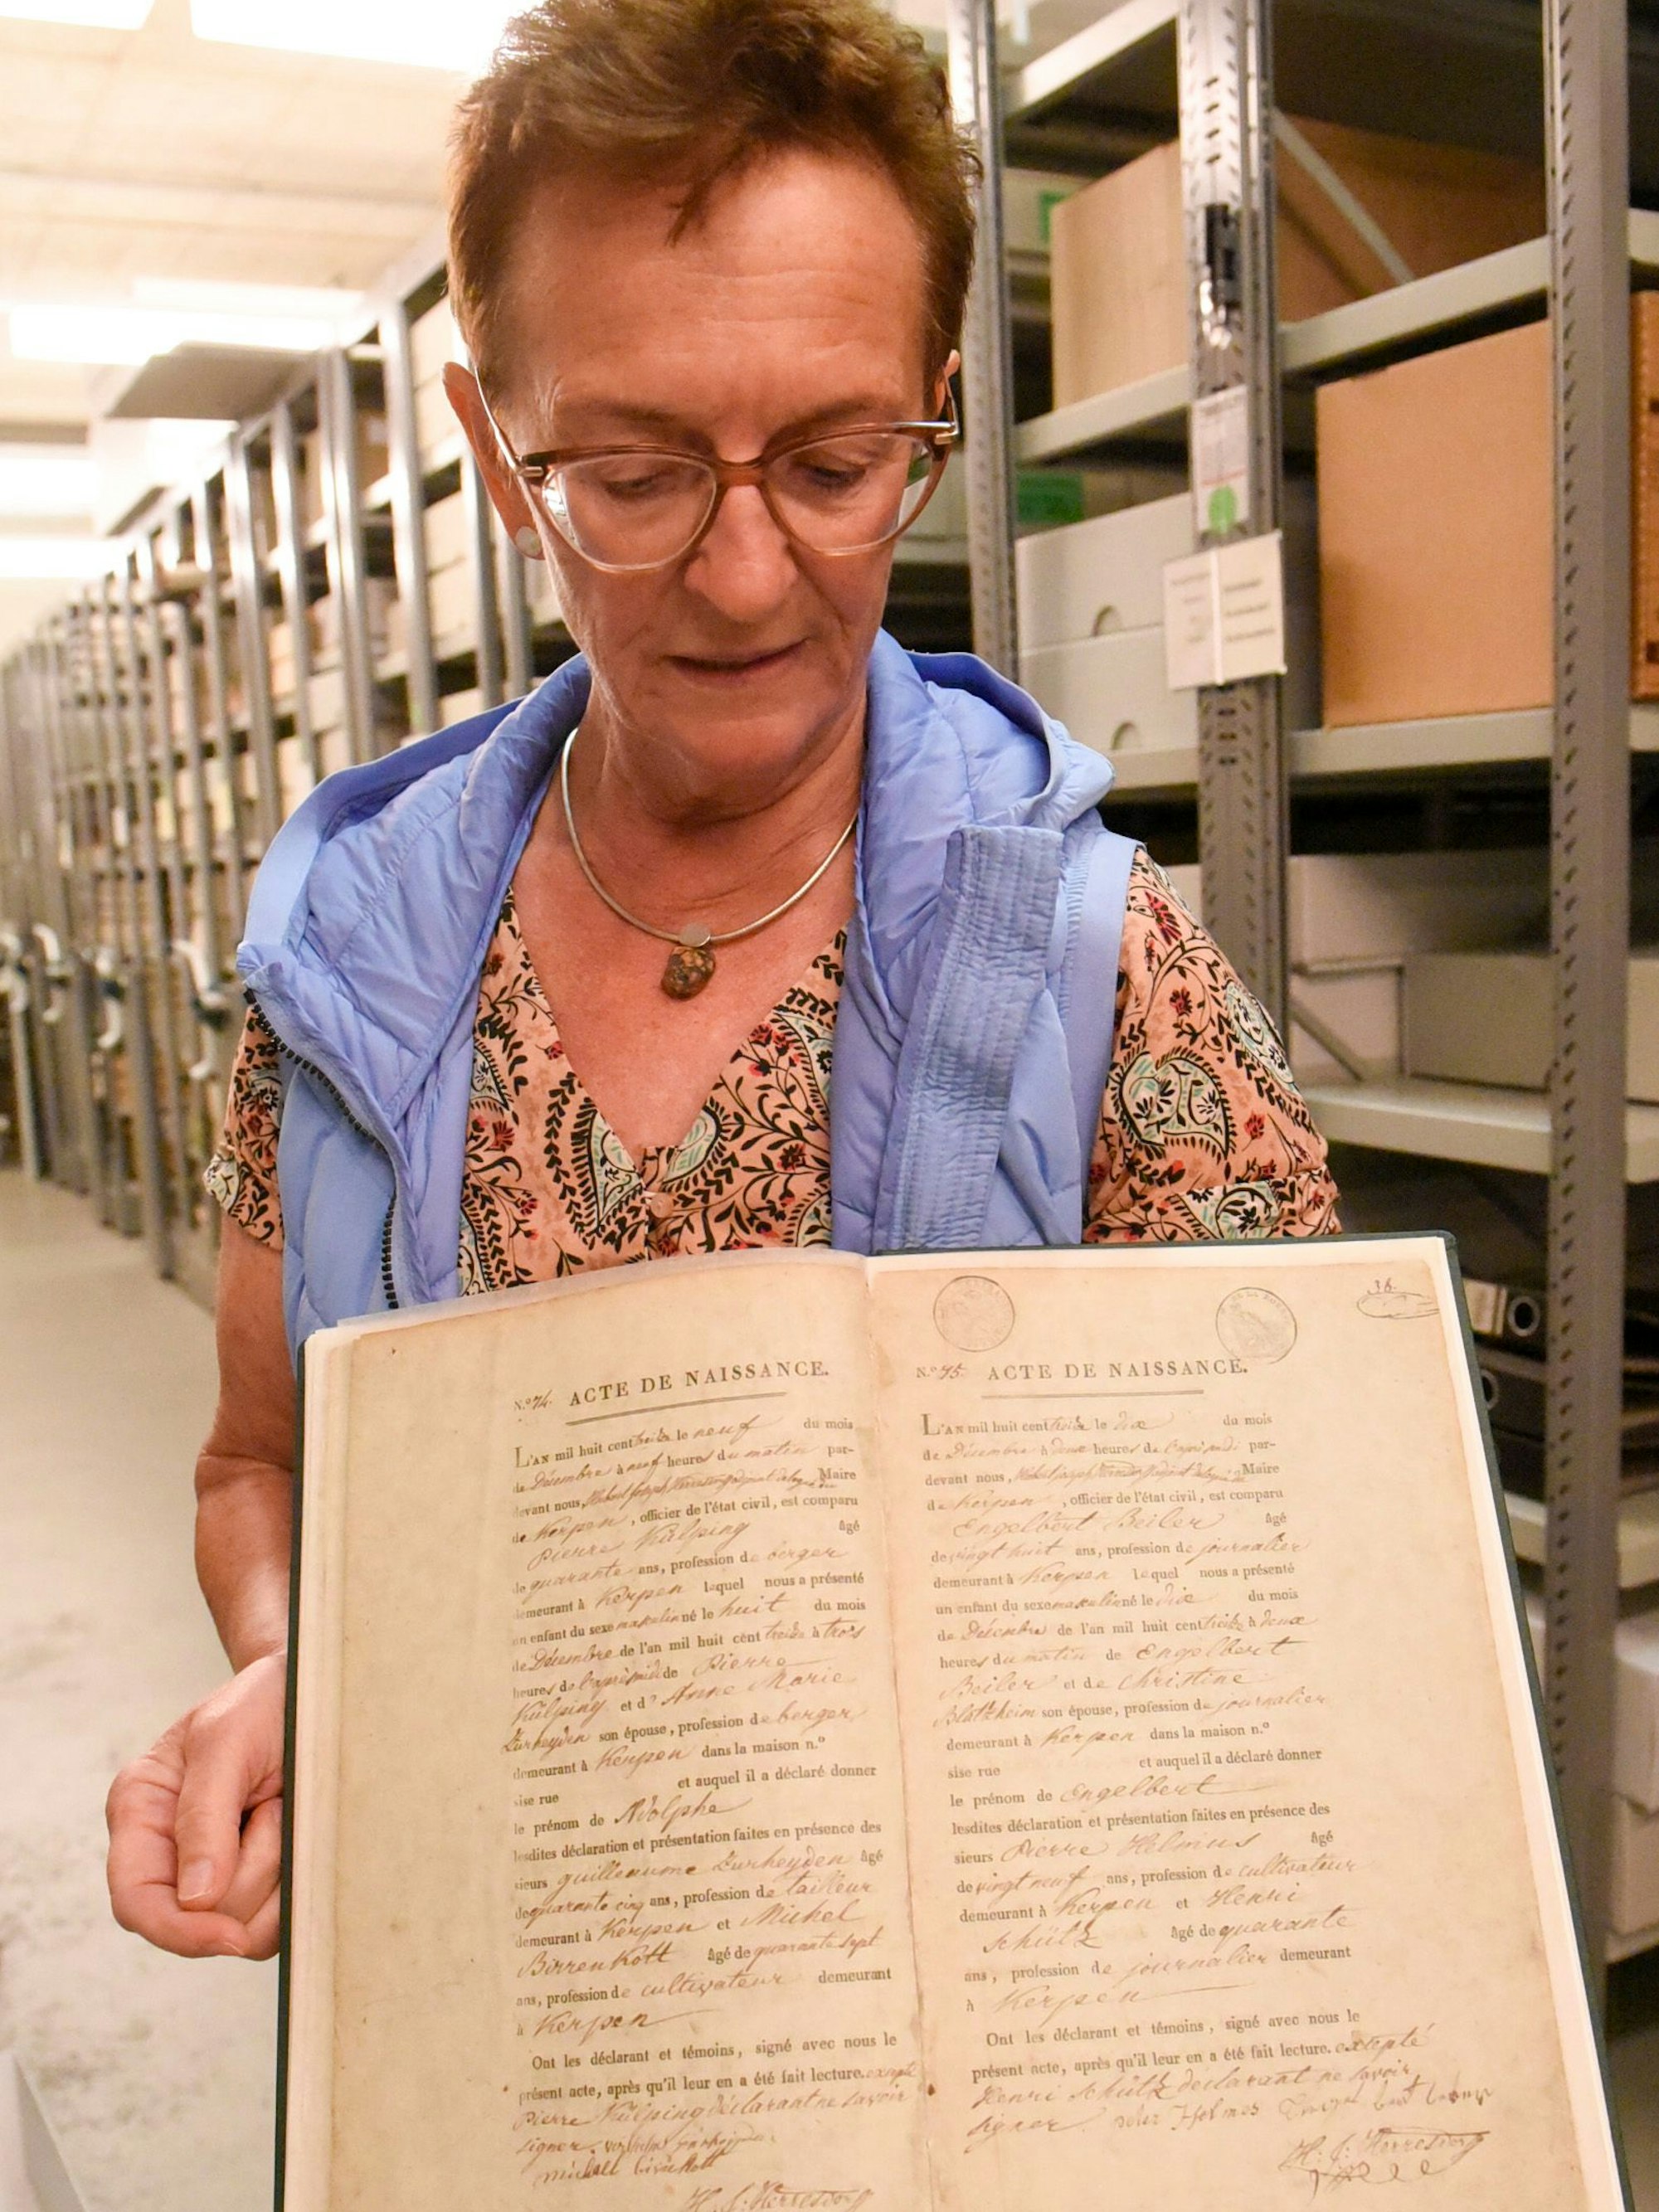 N.º 74. ACTE DE NAISSANCE.
L'AN mil huit cent treize le neuf du mois
de Décembre à neuf heures du matin par-
devant nous, Maire
de Kerpen, officier de l'état civil, est comparu
Pierre Külping âgé
de quarante ans, profession de berger
demeurant à Kerpen lequel nous a présenté
un enfant du sexe masculin né le huit du mois
de Décembre de l'an mil huit cent treize à trois
heures de l'après midi de Pierre
Külping et d' Anne Marie
Zurheyden son épouse, profession de berger
demeurant à Kerpen dans la maison n.º
sise rue et auquel il a déclaré donner
le prénom de Adolphe
lesdites déclaration et présentation faites en présence des
sieurs guilleaume Zurheyden âgé
de quarante cinq ans, profession de tailleur
demeurant à Kerpen et Michel
Birrenkott âgé de quarante sept
ans, profession de cultivateur demeurant
à Kerpen
Ont les déclarant et témoins, signé avec nous le
présent acte, après qu'il leur en a été fait lecture. excepté
Pierre Külping déclarant ne savoir
signer.
36.
N.º 75. ACTE DE NAISSANCE.
L'AN mil huit cent treize le dix du mois
de Décembre à deux heures de l'après midi par-
devant nous, Maire
de Kerpen, officier de l'état civil, est comparu
Engelbert Beiler âgé
de vingt huit ans, profession de journalier
demeurant à Kerpen lequel nous a présenté
un enfant du sexe masculin né le dix du mois
de Décembre de l'an mil huit cent treize à deux
heures du matin de Engelbert
Beiler et de Christine
Blatzheim son épouse, profession de journalier
demeurant à Kerpen dans la maison n.º
sise rue et auquel il a déclaré donner
le prénom de Engelbert
lesdites déclaration et présentation faites en présence des
sieurs Pierre Helmus âgé
de vingt neuf ans, profession de cultivateur
demeurant à Kerpen et Henri
Schütz âgé de quarante
ans, profession de journalier demeurant
à Kerpen
Ont les déclarant et témoins, signé avec nous le
présent acte, après qu'il leur en a été fait lecture. excepté
Henri Schütz déclarant ne savoir
signer.